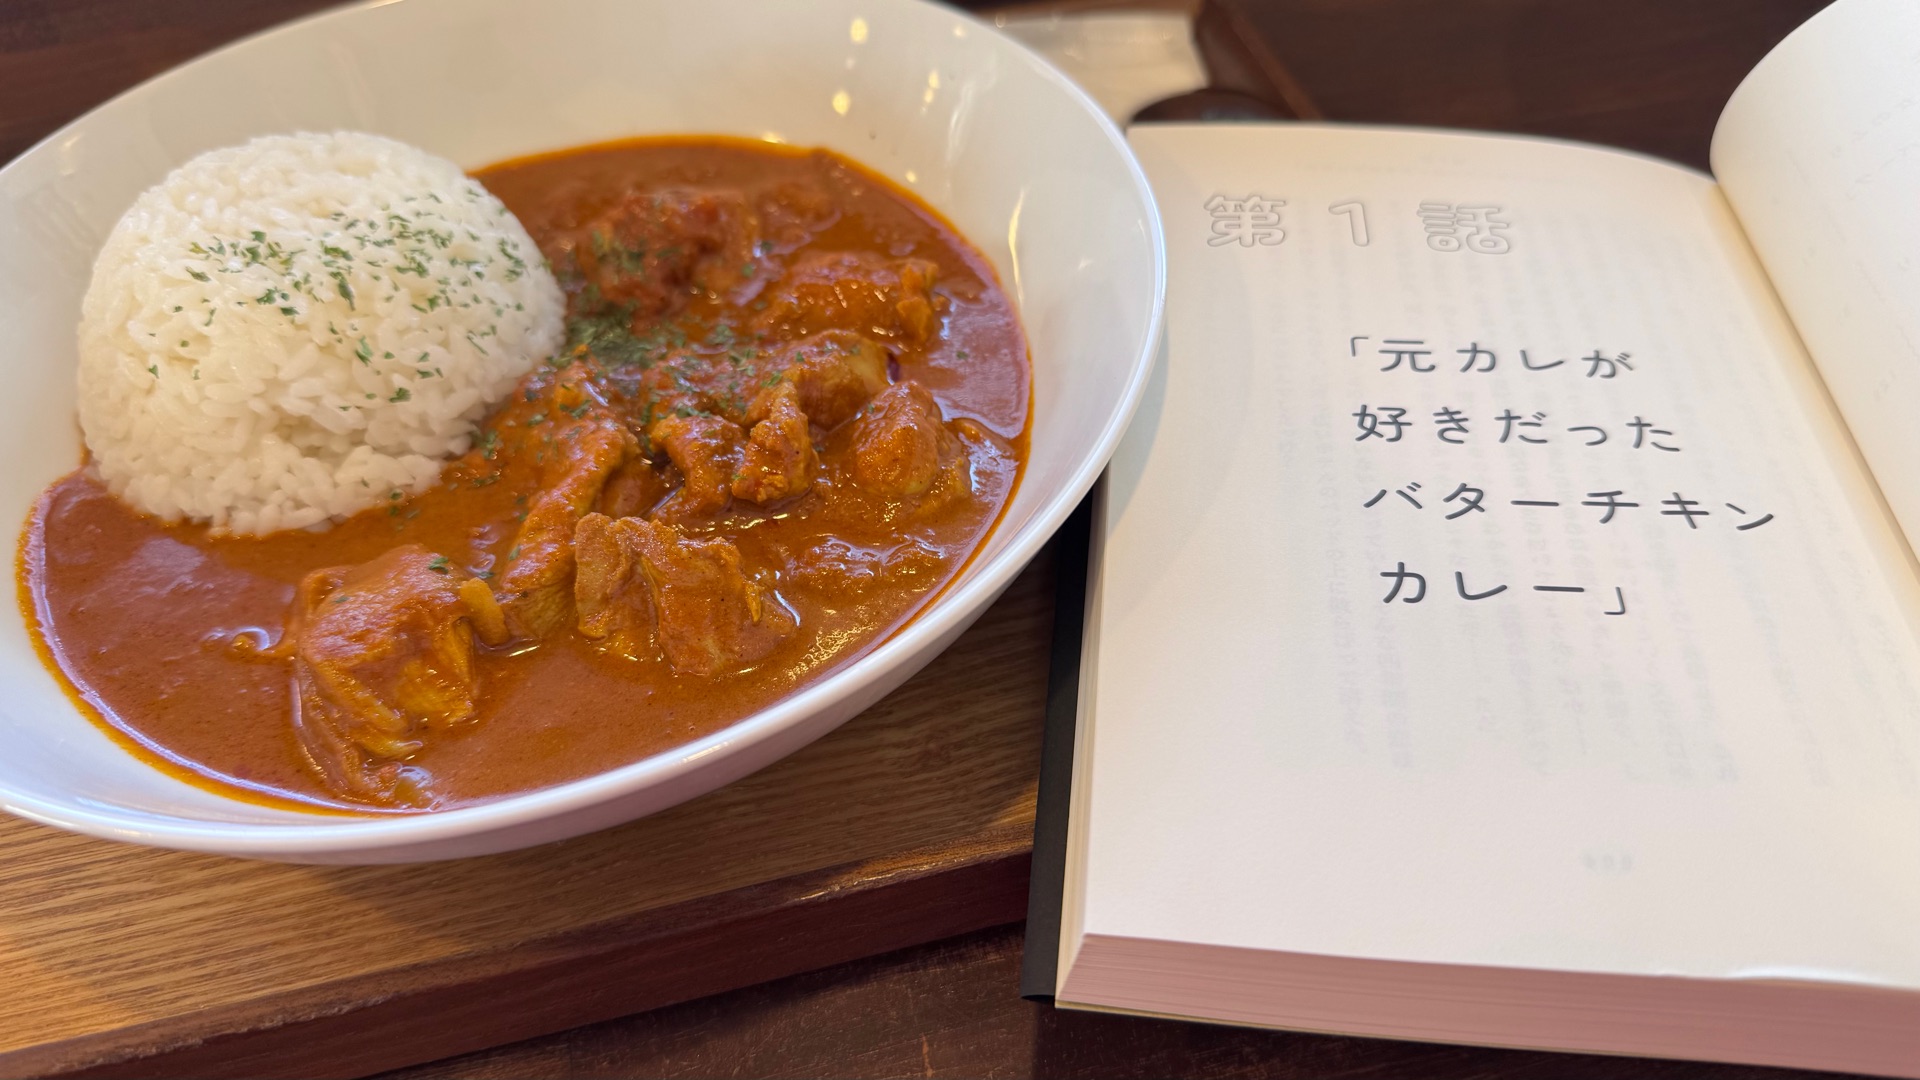 第1話
「元カレが
好きだった
バターチキン
カレー」